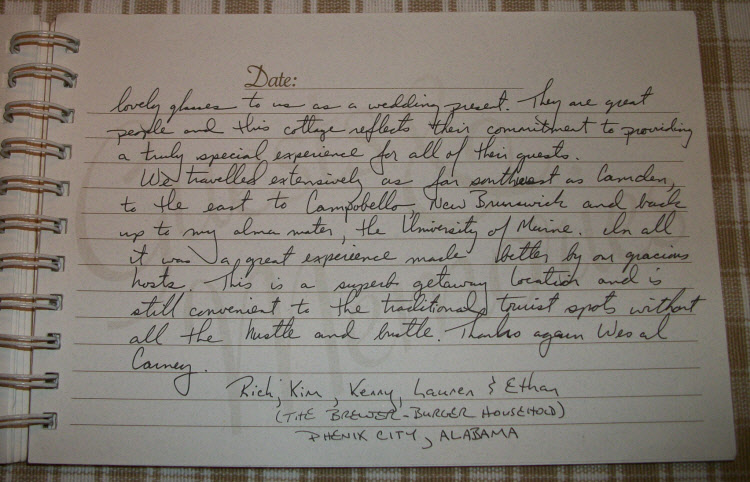 Date:
lovely glasses to us as a wedding present. They are great
people and this cottage reflects their commitment to providing
a truly special experience for all of their guests.
We travelled extensively as far southwest as Camden,
to the east to Campobello New Brunswick and back
up to my alma mater, the University of Maine. In all
it was a great experience made better by our gracious
hosts. This is a superb getaway location and is
still convenient to the traditional tourist spots without
all the hustle and bustle. Thanks again Wes
Carney.
Rich, Kim, Kenny, Lauren & Ethan
(THE BREWER-BURGER HOUSEHOLD)
PHENIX CITY, ALABAMA